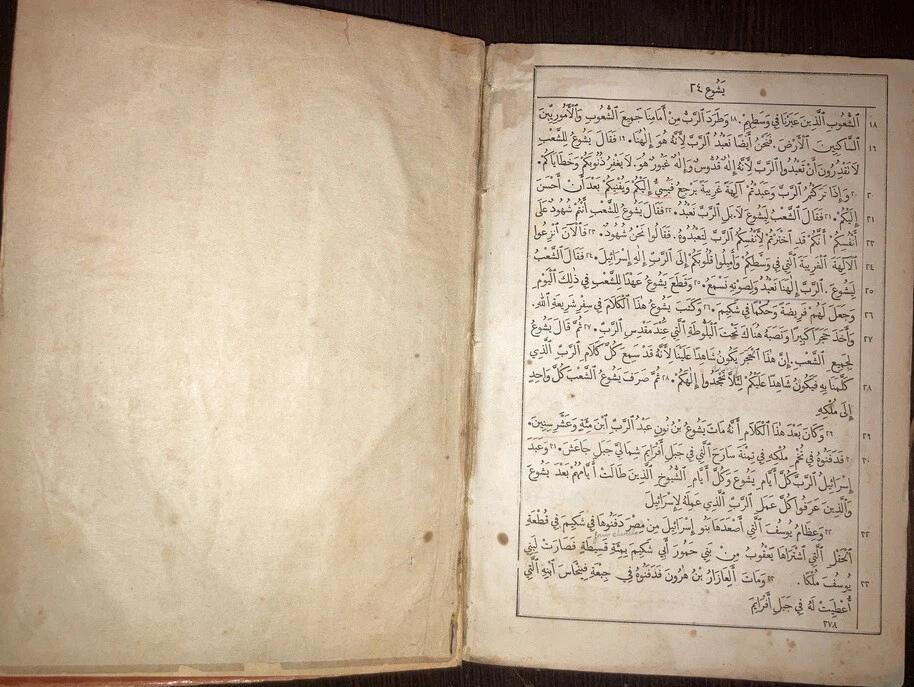 يشوع ٢٤
١٨ الشُّعُوبِ الَّذِينَ عَبَرْنَا فِي وَسَطِهِمْ. ١٨ وَطَرَدَ الرَّبُّ مِنْ أَمَامِنَا جَمِيعَ الشُّعُوبِ وَالْأَمُورِيِّينَ
١٩ السَّاكِنِينَ الْأَرْضَ. فَنَحْنُ أَيْضًا نَعْبُدُ الرَّبَّ لِأَنَّهُ هُوَ إِلٰهُنَا. ١٩ فَقَالَ يَشُوعُ لِلشَّعْبِ
لَا تَقْدِرُونَ أَنْ تَعْبُدُوا الرَّبَّ لِأَنَّهُ إِلٰهٌ قُدُّوسٌ وَإِلٰهٌ غَيُورٌ هُوَ. لَا يَغْفِرُ ذُنُوبَكُمْ وَخَطَايَاكُمْ.
٢٠ ٢٠ وَإِذَا تَرَكْتُمُ الرَّبَّ وَعَبَدْتُمْ آلِهَةً غَرِيبَةً يَرْجِعُ فَيُسِيءُ إِلَيْكُمْ وَيُفْنِيكُمْ بَعْدَ أَنْ أَحْسَنَ
٢١ إِلَيْكُمْ. ٢١ فَقَالَ الشَّعْبُ لِيَشُوعَ لَا. بَلِ الرَّبَّ نَعْبُدُ. ٢٢ فَقَالَ يَشُوعُ لِلشَّعْبِ أَنْتُمْ شُهُودٌ عَلَى
٢٣ أَنْفُسِكُمْ أَنَّكُمْ قَدِ اخْتَرْتُمْ لِأَنْفُسِكُمُ الرَّبَّ لِتَعْبُدُوهُ. فَقَالُوا نَحْنُ شُهُودٌ. ٢٣ فَالْآنَ انْزِعُوا
٢٤ الْآلِهَةَ الْغَرِيبَةَ الَّتِي فِي وَسَطِكُمْ وَأَمِيلُوا قُلُوبَكُمْ إِلَى الرَّبِّ إِلٰهِ إِسْرَائِيلَ. ٢٤ فَقَالَ الشَّعْبُ
٢٥ لِيَشُوعَ. الرَّبَّ إِلٰهَنَا نَعْبُدُ وَلِصَوْتِهِ نَسْمَعُ. ٢٥ وَقَطَعَ يَشُوعُ عَهْدًا لِلشَّعْبِ فِي ذٰلِكَ الْيَوْمِ
٢٦ وَجَعَلَ لَهُمْ فَرِيضَةً وَحُكْمًا فِي شَكِيمَ. ٢٦ وَكَتَبَ يَشُوعُ هٰذَا الْكَلَامَ فِي سِفْرِ شَرِيعَةِ اللهِ.
٢٧ وَأَخَذَ حَجَرًا كَبِيرًا وَنَصَبَهُ هُنَاكَ تَحْتَ الْبَلُّوطَةِ الَّتِي عِنْدَ مَقْدِسِ الرَّبِّ. ٢٧ ثُمَّ قَالَ يَشُوعُ
لِجَمِيعِ الشَّعْبِ. إِنَّ هٰذَا الْحَجَرَ يَكُونُ شَاهِدًا عَلَيْنَا لِأَنَّهُ قَدْ سَمِعَ كُلَّ كَلَامِ الرَّبِّ الَّذِي
٢٨ كَلَّمَنَا بِهِ فَيَكُونُ شَاهِدًا عَلَيْكُمْ لِئَلَّا تَجْحَدُوا إِلٰهَكُمْ. ٢٨ ثُمَّ صَرَفَ يَشُوعُ الشَّعْبَ كُلَّ وَاحِدٍ
إِلَى مُلْكِهِ
٢٩ ٢٩ وَكَانَ بَعْدَ هٰذَا الْكَلَامِ أَنَّهُ مَاتَ يَشُوعُ بْنُ نُونٍ عَبْدُ الرَّبِّ ابْنَ مِئَةٍ وَعَشَرِ سِنِينَ.
٣٠ فَدَفَنُوهُ فِي تُخْمِ مُلْكِهِ فِي تِمْنَةَ سَارَحَ الَّتِي فِي جَبَلِ أَفْرَايِمَ شِمَالِيَّ جَبَلِ جَاعَشَ. ٣١ وَعَبَدَ
إِسْرَائِيلُ الرَّبَّ كُلَّ أَيَّامِ يَشُوعَ وَكُلَّ أَيَّامِ الشُّيُوخِ الَّذِينَ طَالَتْ أَيَّامُهُمْ بَعْدَ يَشُوعَ
وَالَّذِينَ عَرَفُوا كُلَّ عَمَلِ الرَّبِّ الَّذِي عَمِلَهُ لِإِسْرَائِيلَ
٣٢ ٣٢ وَعِظَامُ يُوسُفَ الَّتِي أَصْعَدَهَا بَنُو إِسْرَائِيلَ مِنْ مِصْرَ دَفَنُوهَا فِي شَكِيمَ فِي قِطْعَةِ
الْحَقْلِ الَّتِي اشْتَرَاهَا يَعْقُوبُ مِنْ بَنِي حَمُورَ أَبِي شَكِيمَ بِمِئَةِ قَسِيطَةٍ فَصَارَتْ لِبَنِي
٣٣ يُوسُفَ مُلْكًا. ٣٣ وَمَاتَ أَلِعَازَارُ بْنُ هٰرُونَ فَدَفَنُوهُ فِي جِبْعَةِ فِينْحَاسَ ابْنِهِ الَّتِي
أُعْطِيَتْ لَهُ فِي جَبَلِ أَفْرَايِمَ
٣٧٨